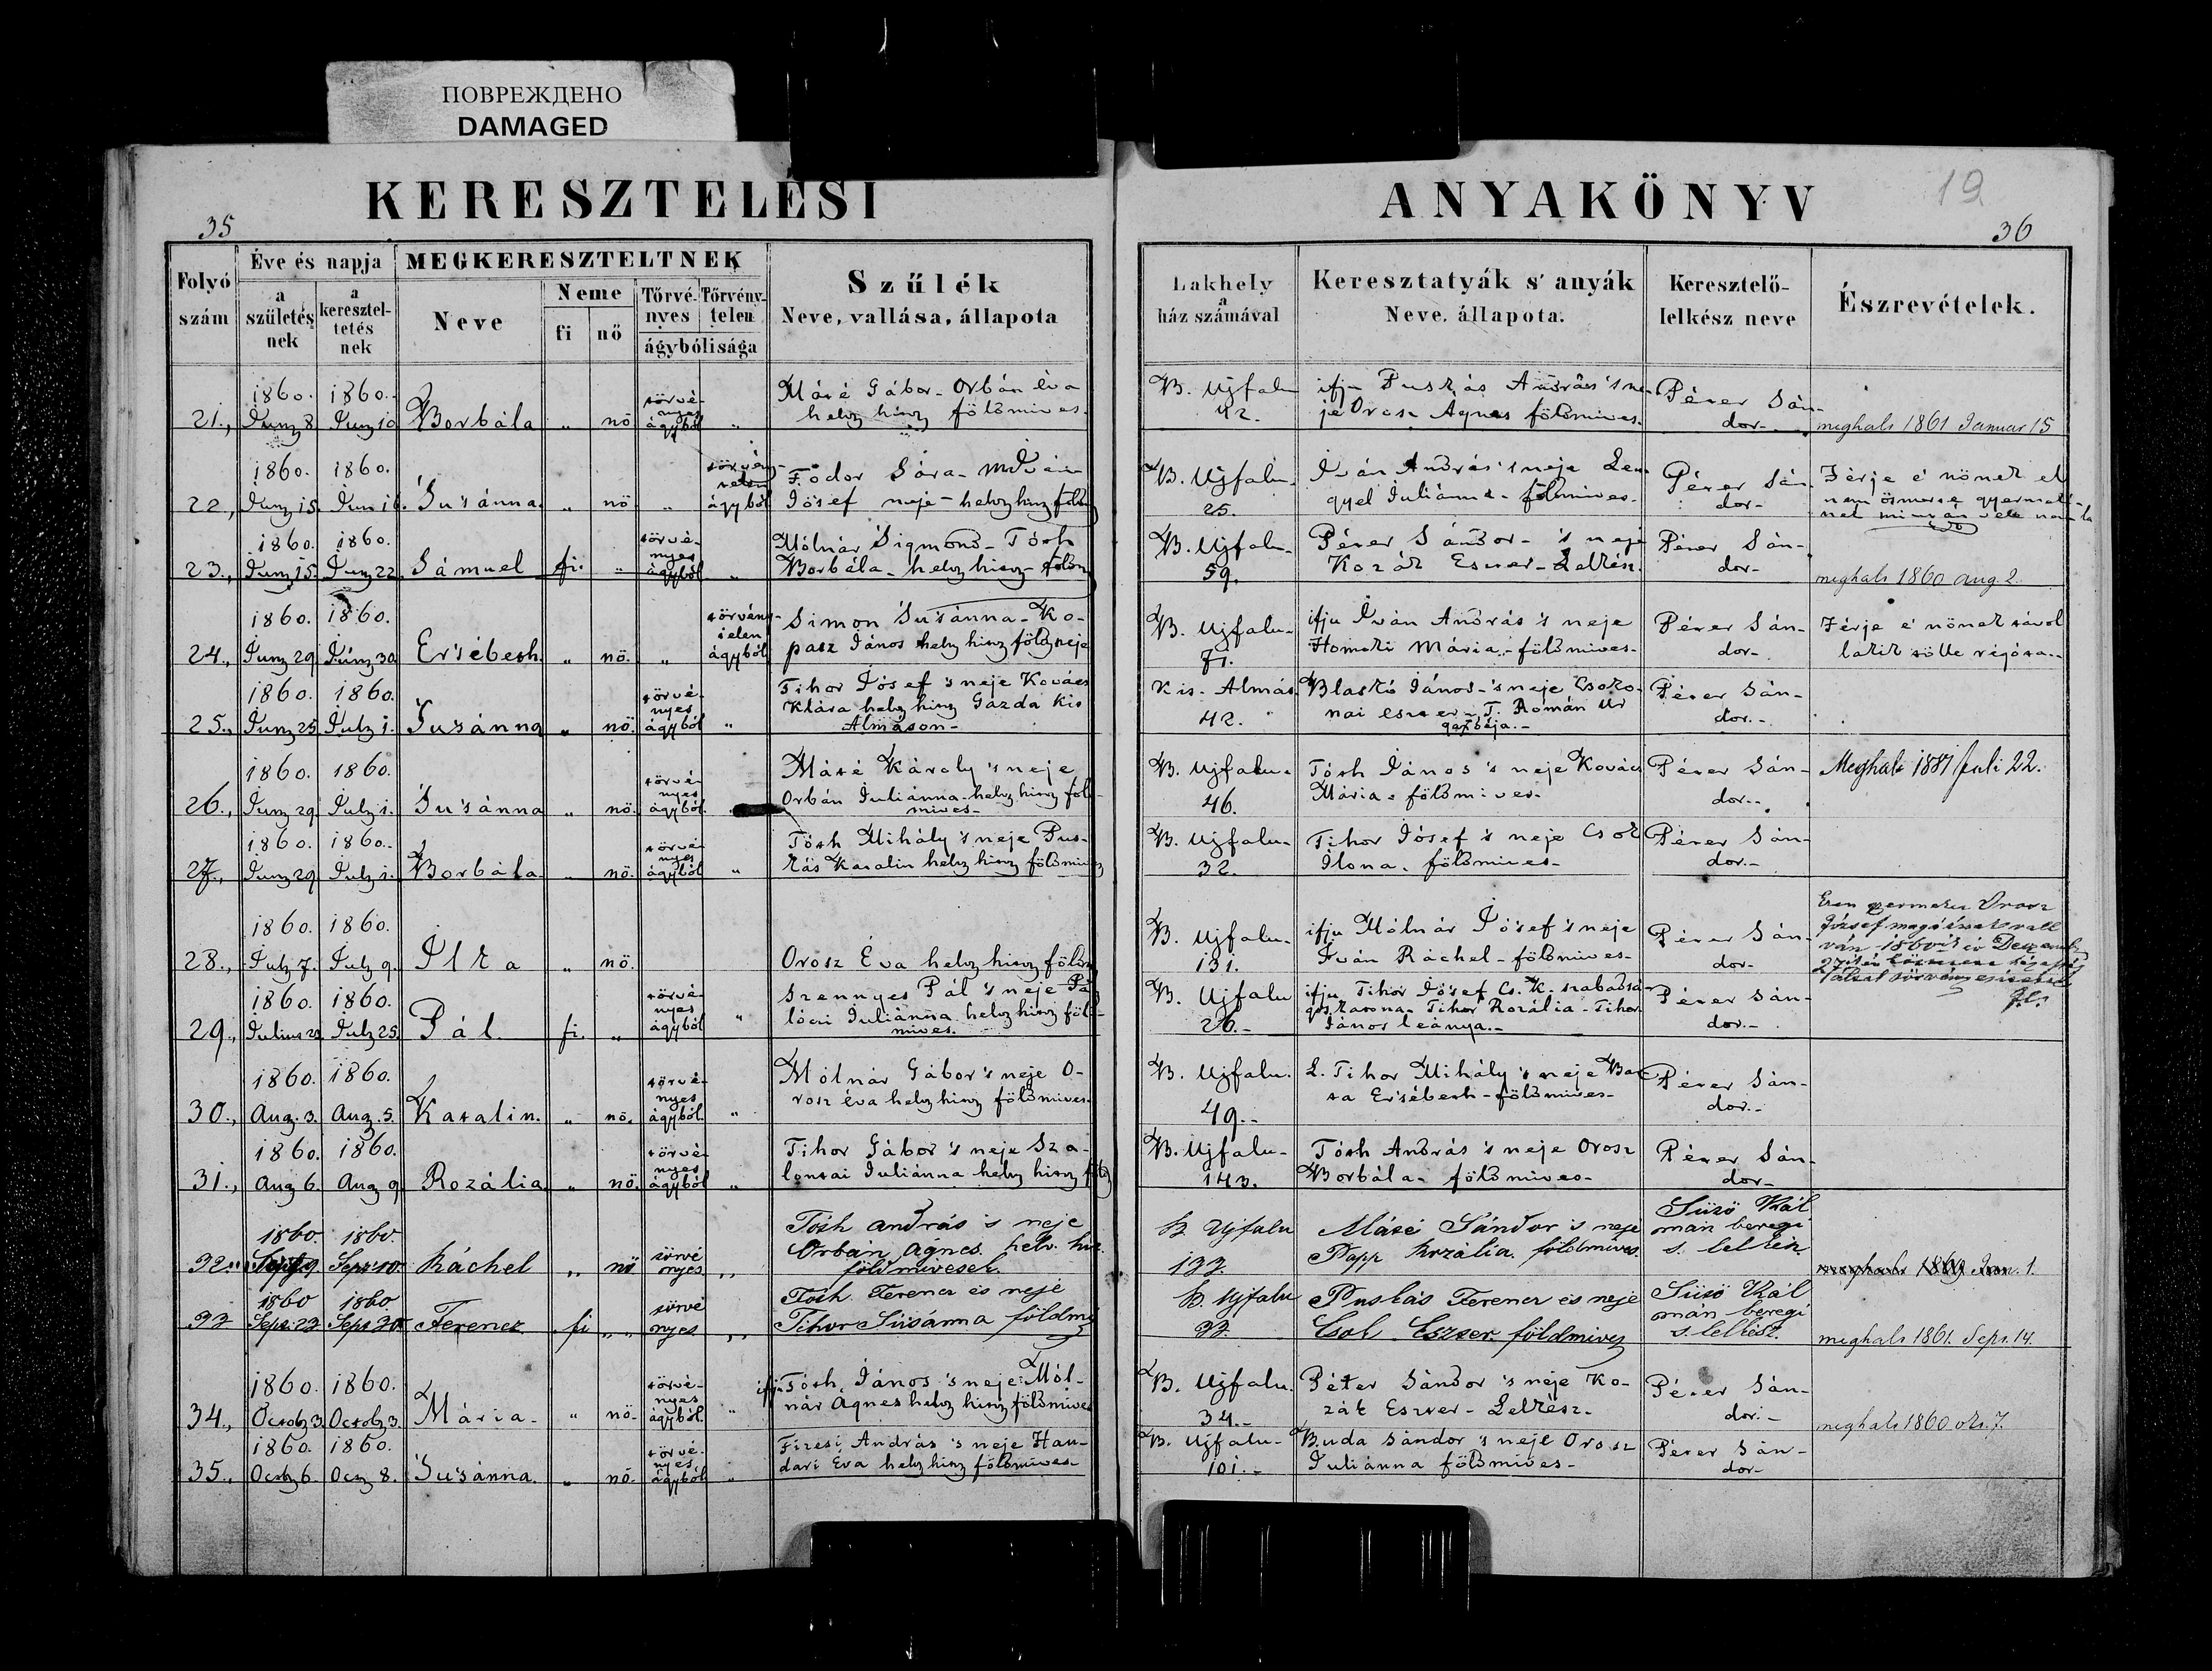 ПОВРЕЖДЕНО
DAMAGED
KERESZTELÉSI
ANYAKÖNYV
19
35
36
Folyó szám
Éve és napja
a születés nek
a keresztel- tetés nek
MEGKERESZTELTNEK
Neve
Neme
fi
nő
Törvé- nyes
Törvény- telen
ágybólisága
Szűlék
Neve, vallása, állapota
Lakhely
a
ház számával
Keresztatyák s' anyák
Neve, állapota.
Keresztelő- lelkész neve
Észrevételek.
1860. 1860.
21., Juny 8 Juny 10 Borbála „ nö törvé- nyes ágyból „
Máté Gábor - Orbán éva
helv. hitv földmives.
B. Ujfalu
42.
ifj- Puskás András 's ne-
je Orosz Ágnes földmives.
Péter Sán-
dor-
meghalt 1861 Januar 15
1860. 1860.
22, Juny 15. Jun 16. Susánna. „ nö „ törvény- telen ágyból
Fodor Sára -
Jósef neje - helv hitv földm
B. Ujfalu-
25.
Iván András 's neje Len-
gyel Juliánna - földmives-
Péter Sán-
dor-
Férje é nönek el
nem ösmerte gyermek-
nek
1860. 1860.
23., Juny 15. Juny 22. Sámuel fi. „ törvé- nyes ágyból „
Mólnár Sigmond - Tóth
Borbála - helv hitv - földm
B. Ujfalu-
59.
Péter Sándor - 's neje
Kozák Eszter - Lelkész.
Péter Sán-
dor-
meghalt 1860 aug 2.
1860. 1860.
24., Juny 29 Juny 30 Ersébeth. „ nö. „ törvény- telen ágyból
Simon Susánna - Ko-
pasz János helv hitv földm neje
B. Ujfalu-
71.
ifju Iván András 's neje
Homoki Mária - földmives-
Péter Sán-
dor-
Férje é nönek távol
lakik tölle régóta..
1860. 1860.
25., Juny 25 July 1. Susánna „ nö. törvé- nyes ágyból „
Tihor Jósef 's neje Kovács
Klára helv hitv Gazda Kis
Almáson-
Kis-Almás.
42.
Blaskó János - 's neje Csoko-
nai eszter - T. Román Ur
gazdája.-
Péter Sán-
dor.-
1860. 1860.
26., Juny 29. July 1. Susánna „ nö. törvé- nyes ágyból.
Máté Károly 's neje
Orbán Juliánna - helv hitv föld-
mives-
B. Ujfalu.
46.
Tóth János 's neje Kovács
Mária - földmives-
Péter Sán-
dor-.
Meghalt 1881 Juli 22.
1860. 1860.
27., Juny 29 July 1. Borbála. „ nö. törvé- nyes ágyból „
Tóth Mihály 's neje Pus-
kás Katalin helv hitv földmives
B. Ujfalu-
32.
Tihor Jósef 's neje Csok
Ilona. földmives-
Péter Sán-
dor.-
1860. 1860.
28., July 7. July 9. Ilka „ nö.
Orosz Éva helv hitv földm
B. Ujfalu-
131.
ifju Mólnár Jósef 's neje
Iván Ráchel - földmives-
Péter Sán-
dor-
Ezen gyermeket Orosz
József magáénak vall
ván
1860. 1860.
29., Julius 23 July 25. Pál. fi. „ törvé- nyes ágyból „
Szennyes Pál 's neje Pa-
lóczi Juliánna helv hitv föld-
mives.
B. Ujfalu
26.-
ifju Tihor Jósef Cs. K. szabadsá-
gos katona - Tihor Rozália - Tihor
János leánya.-
Péter Sán-
dor.-
1860. 1860.
30., Aug. 3. Aug. 5. Katalin. „ nö. törvé- nyes ágyból. „
Mólnár Gábor 's neje O-
rosz éva helv hitv földmives-
B. Ujfalu.
49.-
L. Tihor Mihály 's neje Bar-
ta Ersébeth - földmives-
Péter Sán-
dor.-
1860. 1860.
31., Aug 6. Aug 9 Rozália „ nö. törvé- nyes ágyból „
Tihor Gábor 's neje Sza-
lontai Juliánna helv hitv földm
B. Ujfalu-
143.
Tóth András 's neje Orosz
Borbála - földmives-
Péter Sán-
dor-
1860. 1860.
32. Sept 9 Sept 10 Ráchel „ nö törvé nyes „
Tóth András 's neje
Orbán Ágnes. helv. hit.
földmivesek.
B. Ujfalu
133.
Máté Sándor 's neje
Papp Rozália. földmives
Sütö Kál
mán beregi
s. lelkész
meghalt 1869 Jan. 1.
1860 1860
33 Sept 23 Sept 30 Ferencz fi „ törvé nyes „
Tóth Ferencz és neje
Tihor Susánna földmi
B. Ujfalu
33.
Puskás Ferencz és neje
Csok Eszter földmives
Sütö Kál
mán beregi
s. lelkész.
meghalt 1861. Sept. 14.
1860. 1860.
34., Octob 3. Octob 3. Mária- „ nö- törvé- nyes ágyból. „
ifj. Tóth János 's neje Mól-
nár Ágnes helv hitv földmives
B. Ujfalu.
34.-
Péter Sándor 's neje Ko-
zák Eszter - Lelkész-
Péter Sán-
dor.-
meghalt 1860 okt. 7.
1860. 1860.
35., Octob 6. Oct 8. Susánna. „ nö. törvé- nyes ágyból „
Füzesi András 's neje Han-
dari Éva helv hitv földmives-
B. Ujfalu-
101.-
Buda Sándor 's neje Orosz
Juliánna földmives-
Péter Sán-
dor-